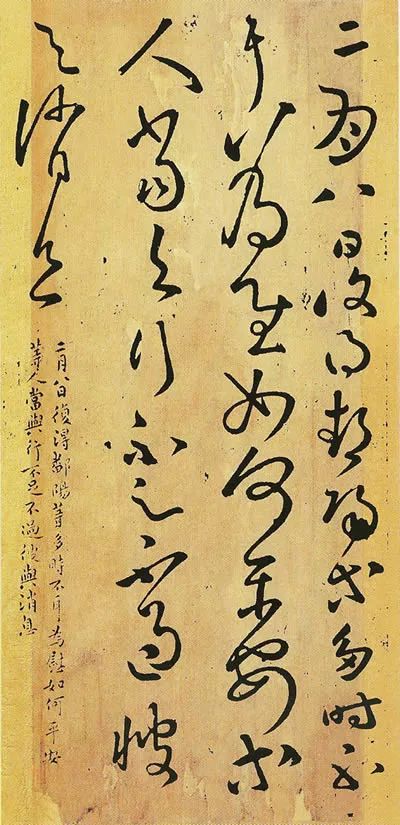 二月八日復得鄱陽等多時不
耳為慰如何平安等
人當與行不足不過彼
與消息
二月八日復得鄱陽等多時不耳為慰如何平安
等人當與行不足不過彼與消息